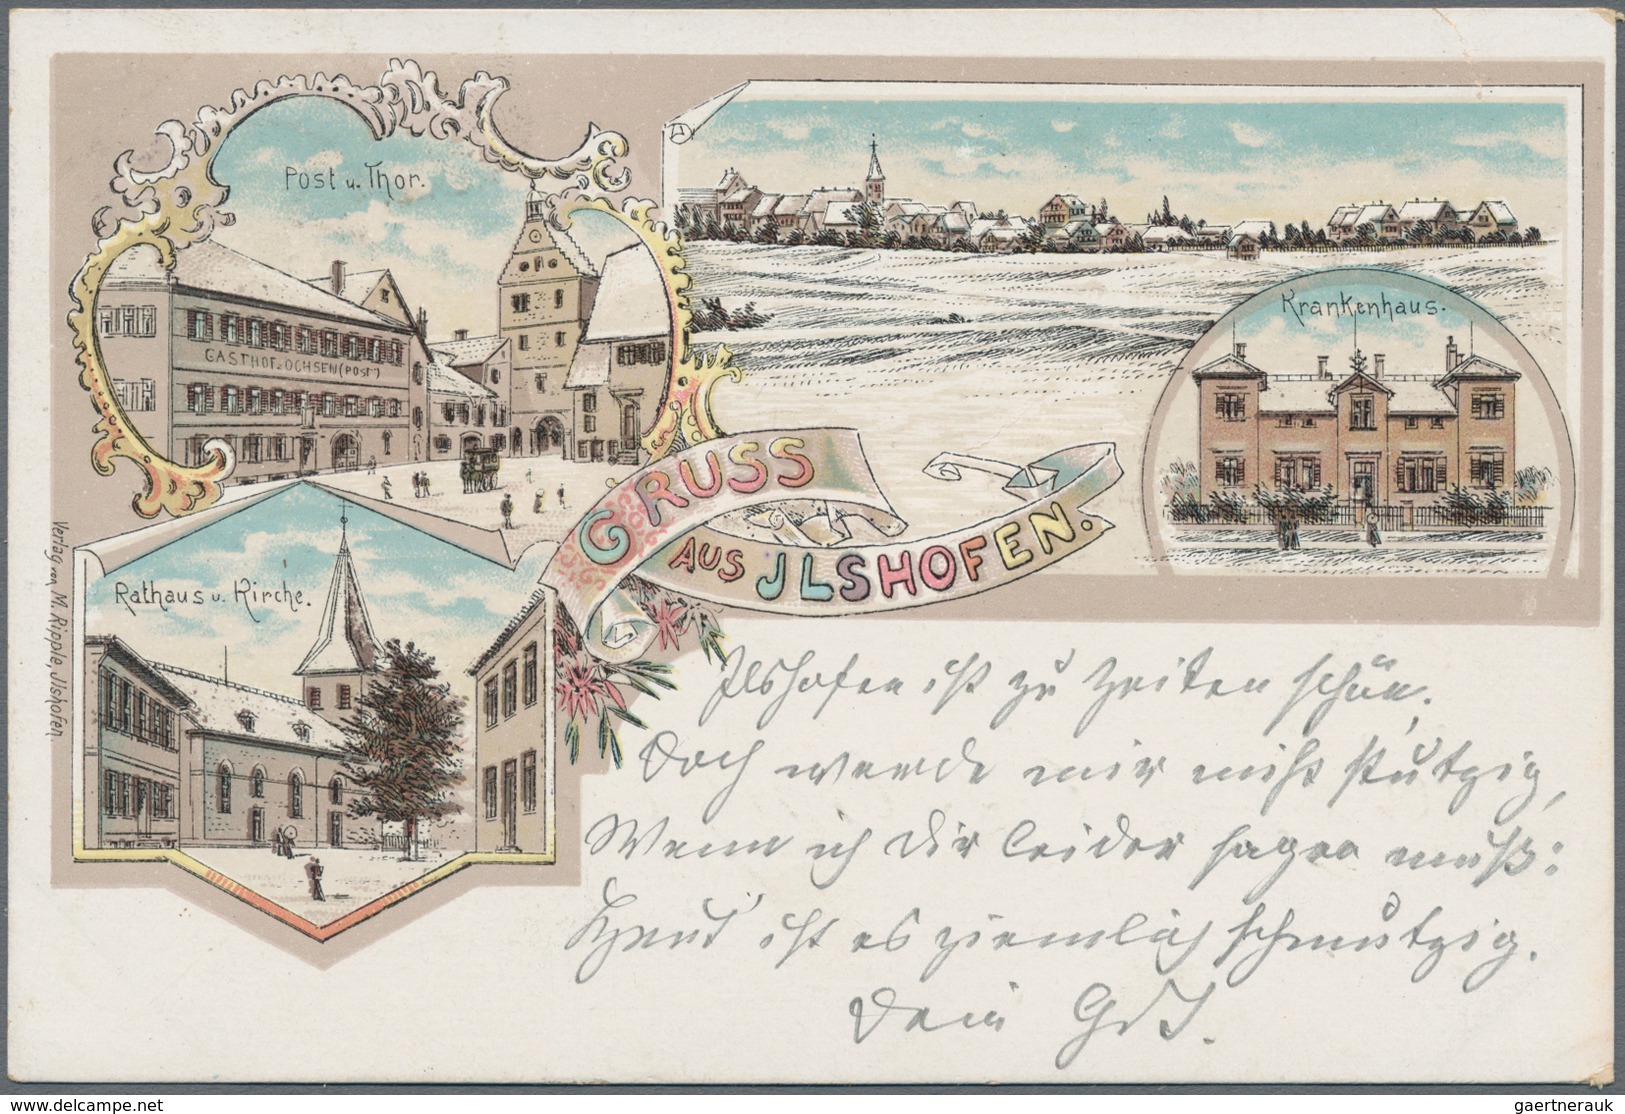 Post u. Thor.
GASTHOF z. OCHSEN (POST)
Krankenhaus.
GRUSS
AUS JLSHOFEN.
Rathaus u. Kirche.
Verlag von M. Ripple, Jlshofen.
Ilshofen ist zu Zeiten schön,
Doch werde mir nicht stutzig,
Wenn ich Dir leider sagen muß:
Heut' ist es ziemlich schmutzig.
Dein
delcampe.net
gaertnerauk